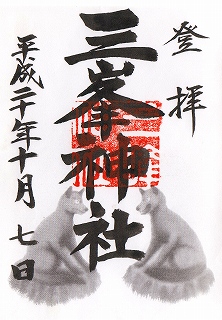 登拝
三峯神社
平成二十年十月七日